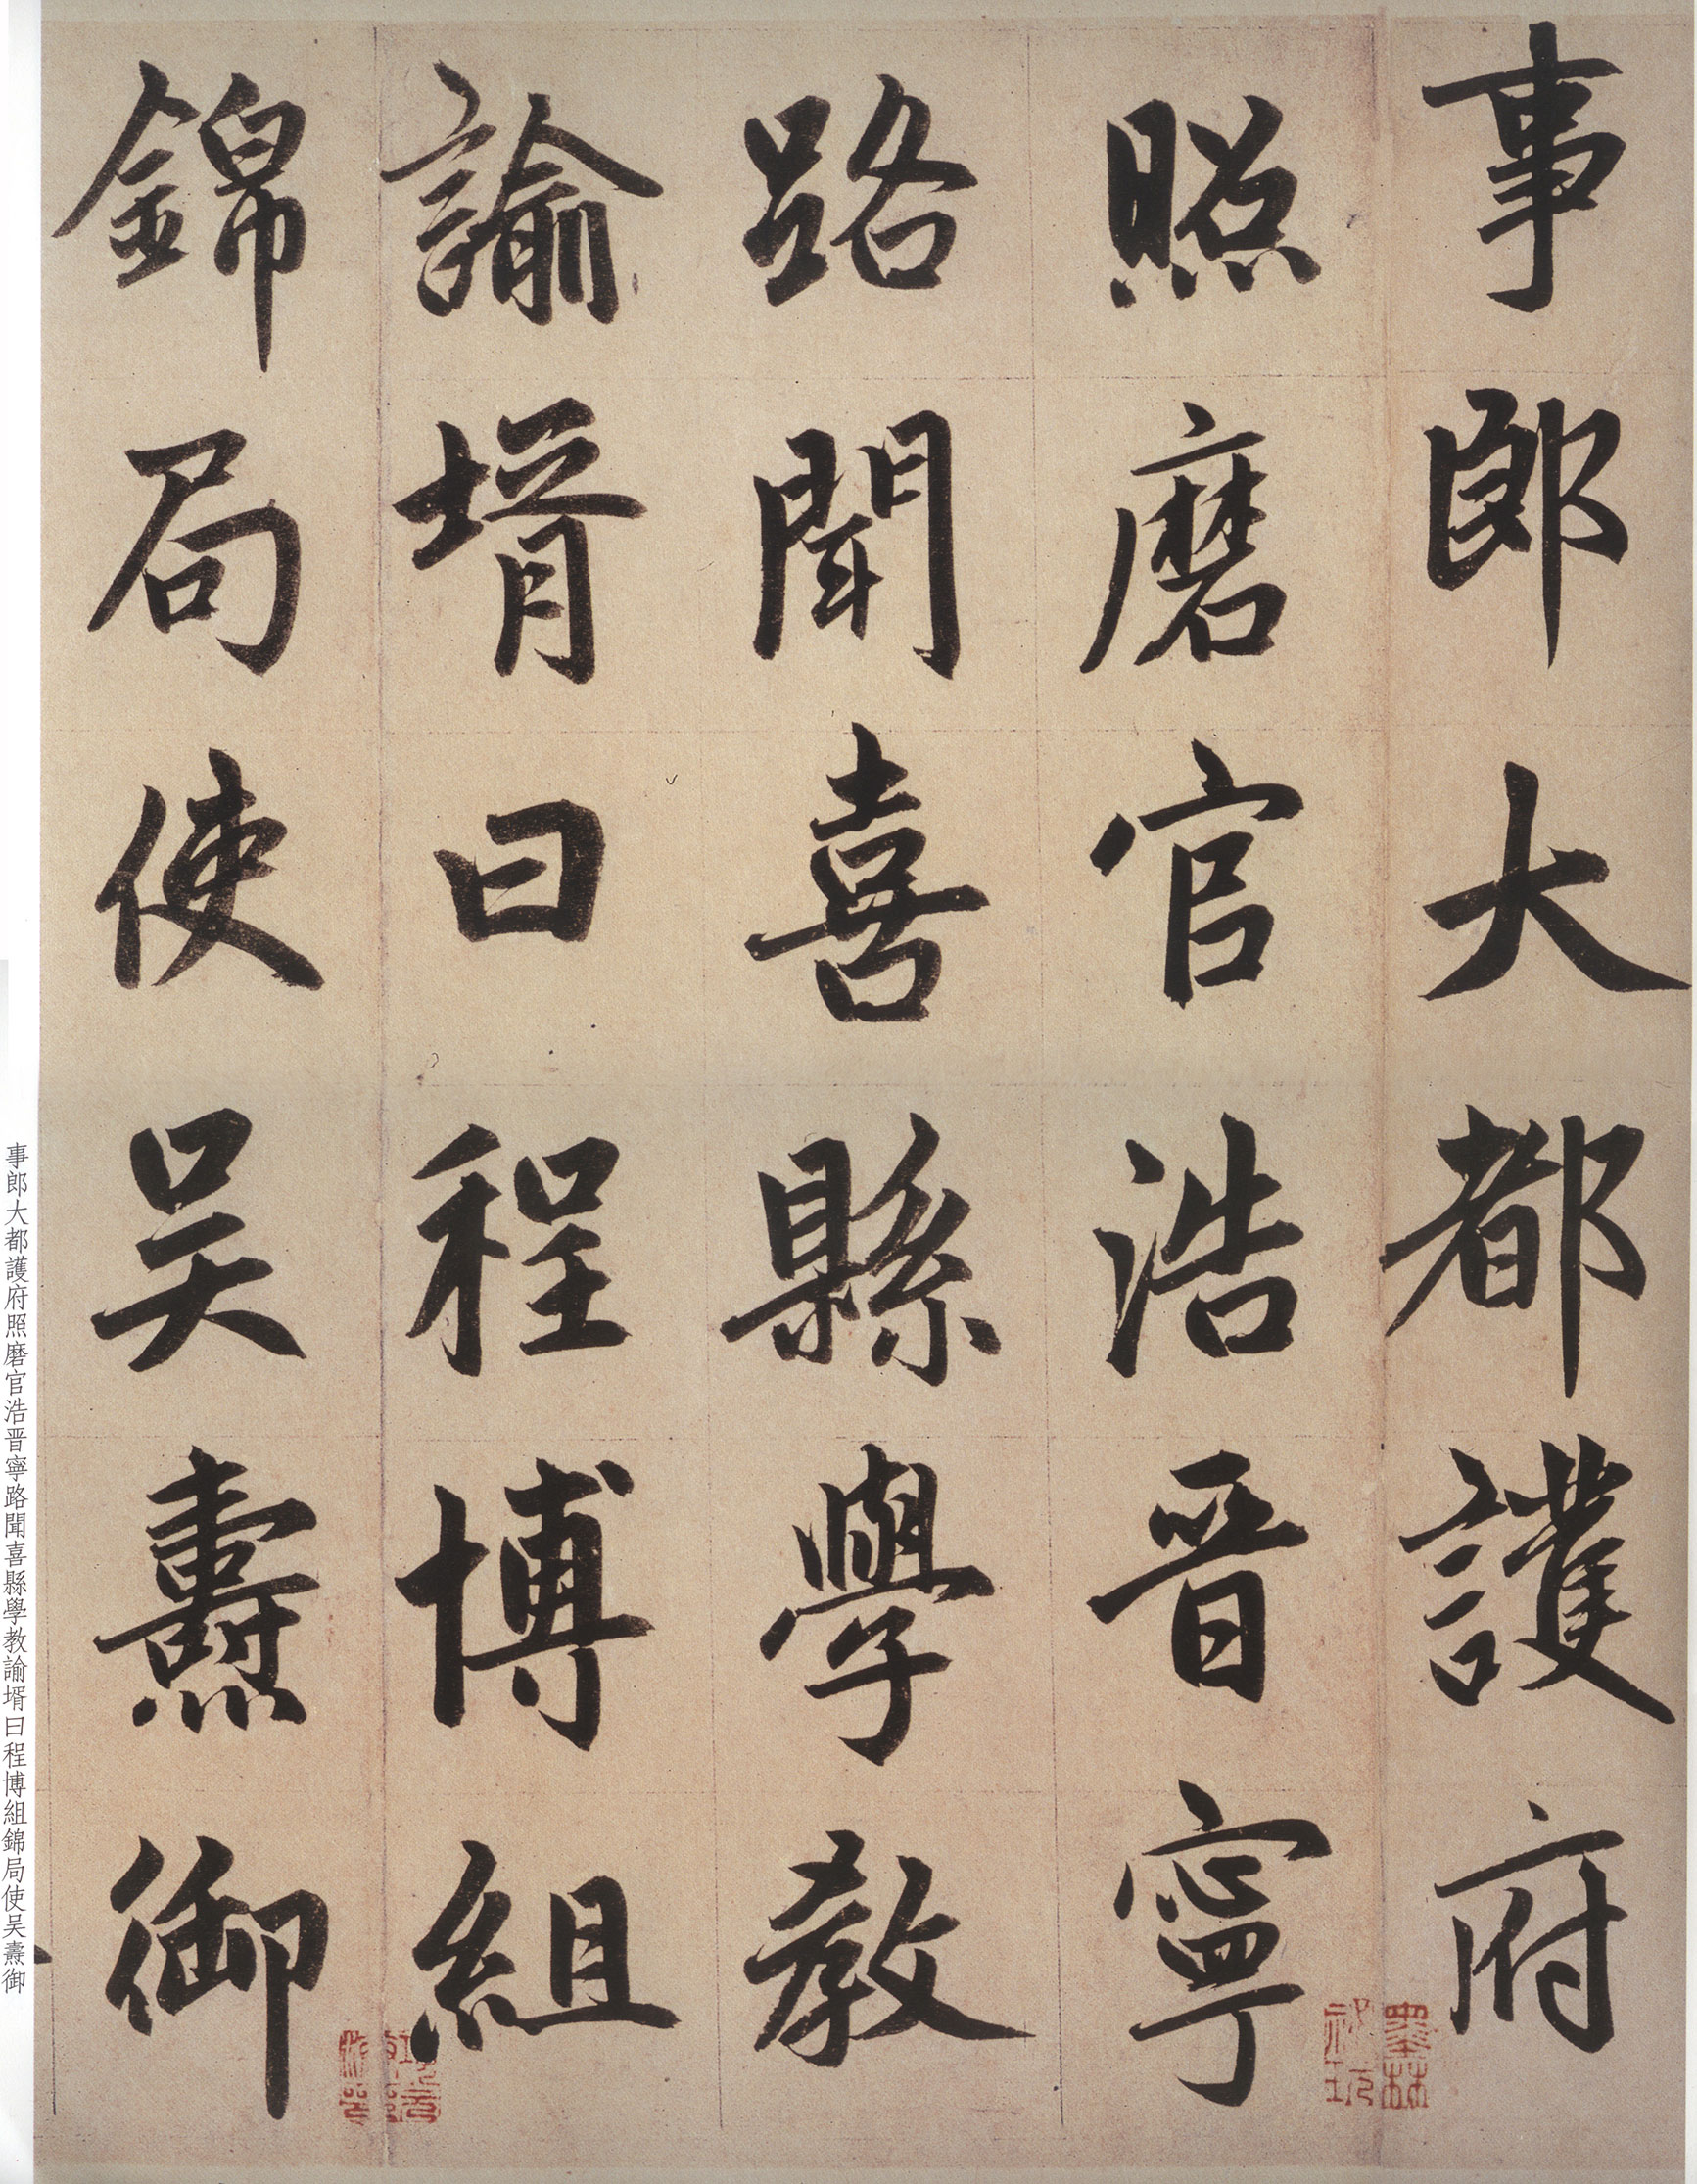 事郎大都護府
照磨官浩晋寧
路聞喜縣學教
諭壻曰程博組
錦局使吴燾御
墨林
祕玩
事郎大都護府照磨官浩晋寧路聞喜縣學教諭壻曰程博組錦局使吴燾御